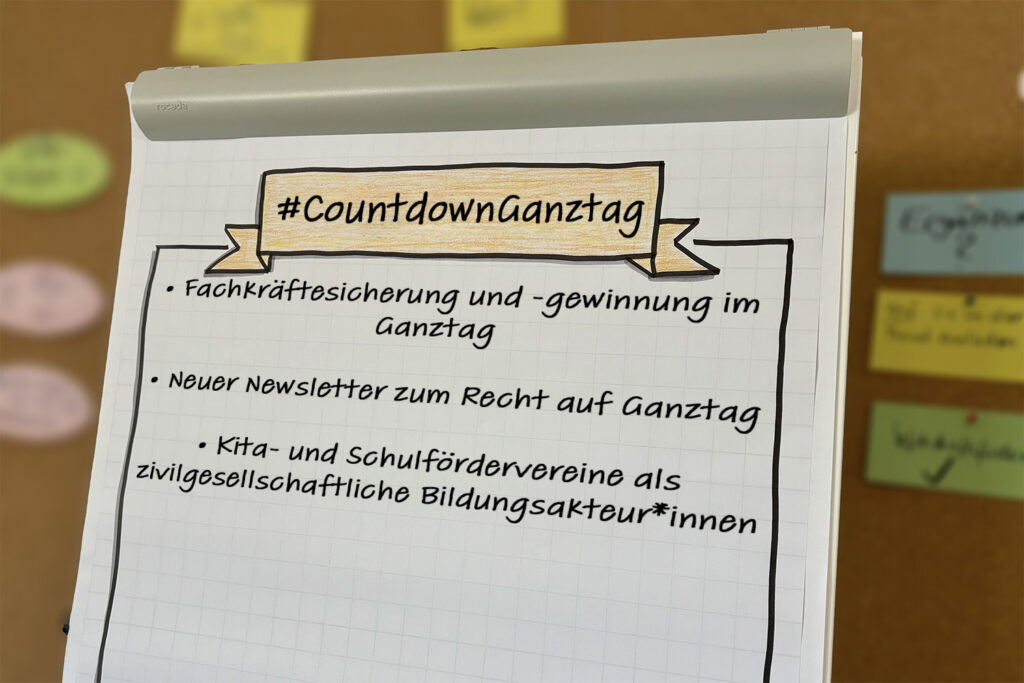 rocada
#CountdownGanztag
• Fachkräftesicherung und -gewinnung im
Ganztag
• Neuer Newsletter zum Recht auf Ganztag
• Kita- und Schulfördervereine als
zivilgesellschaftliche Bildungsakteur*innen